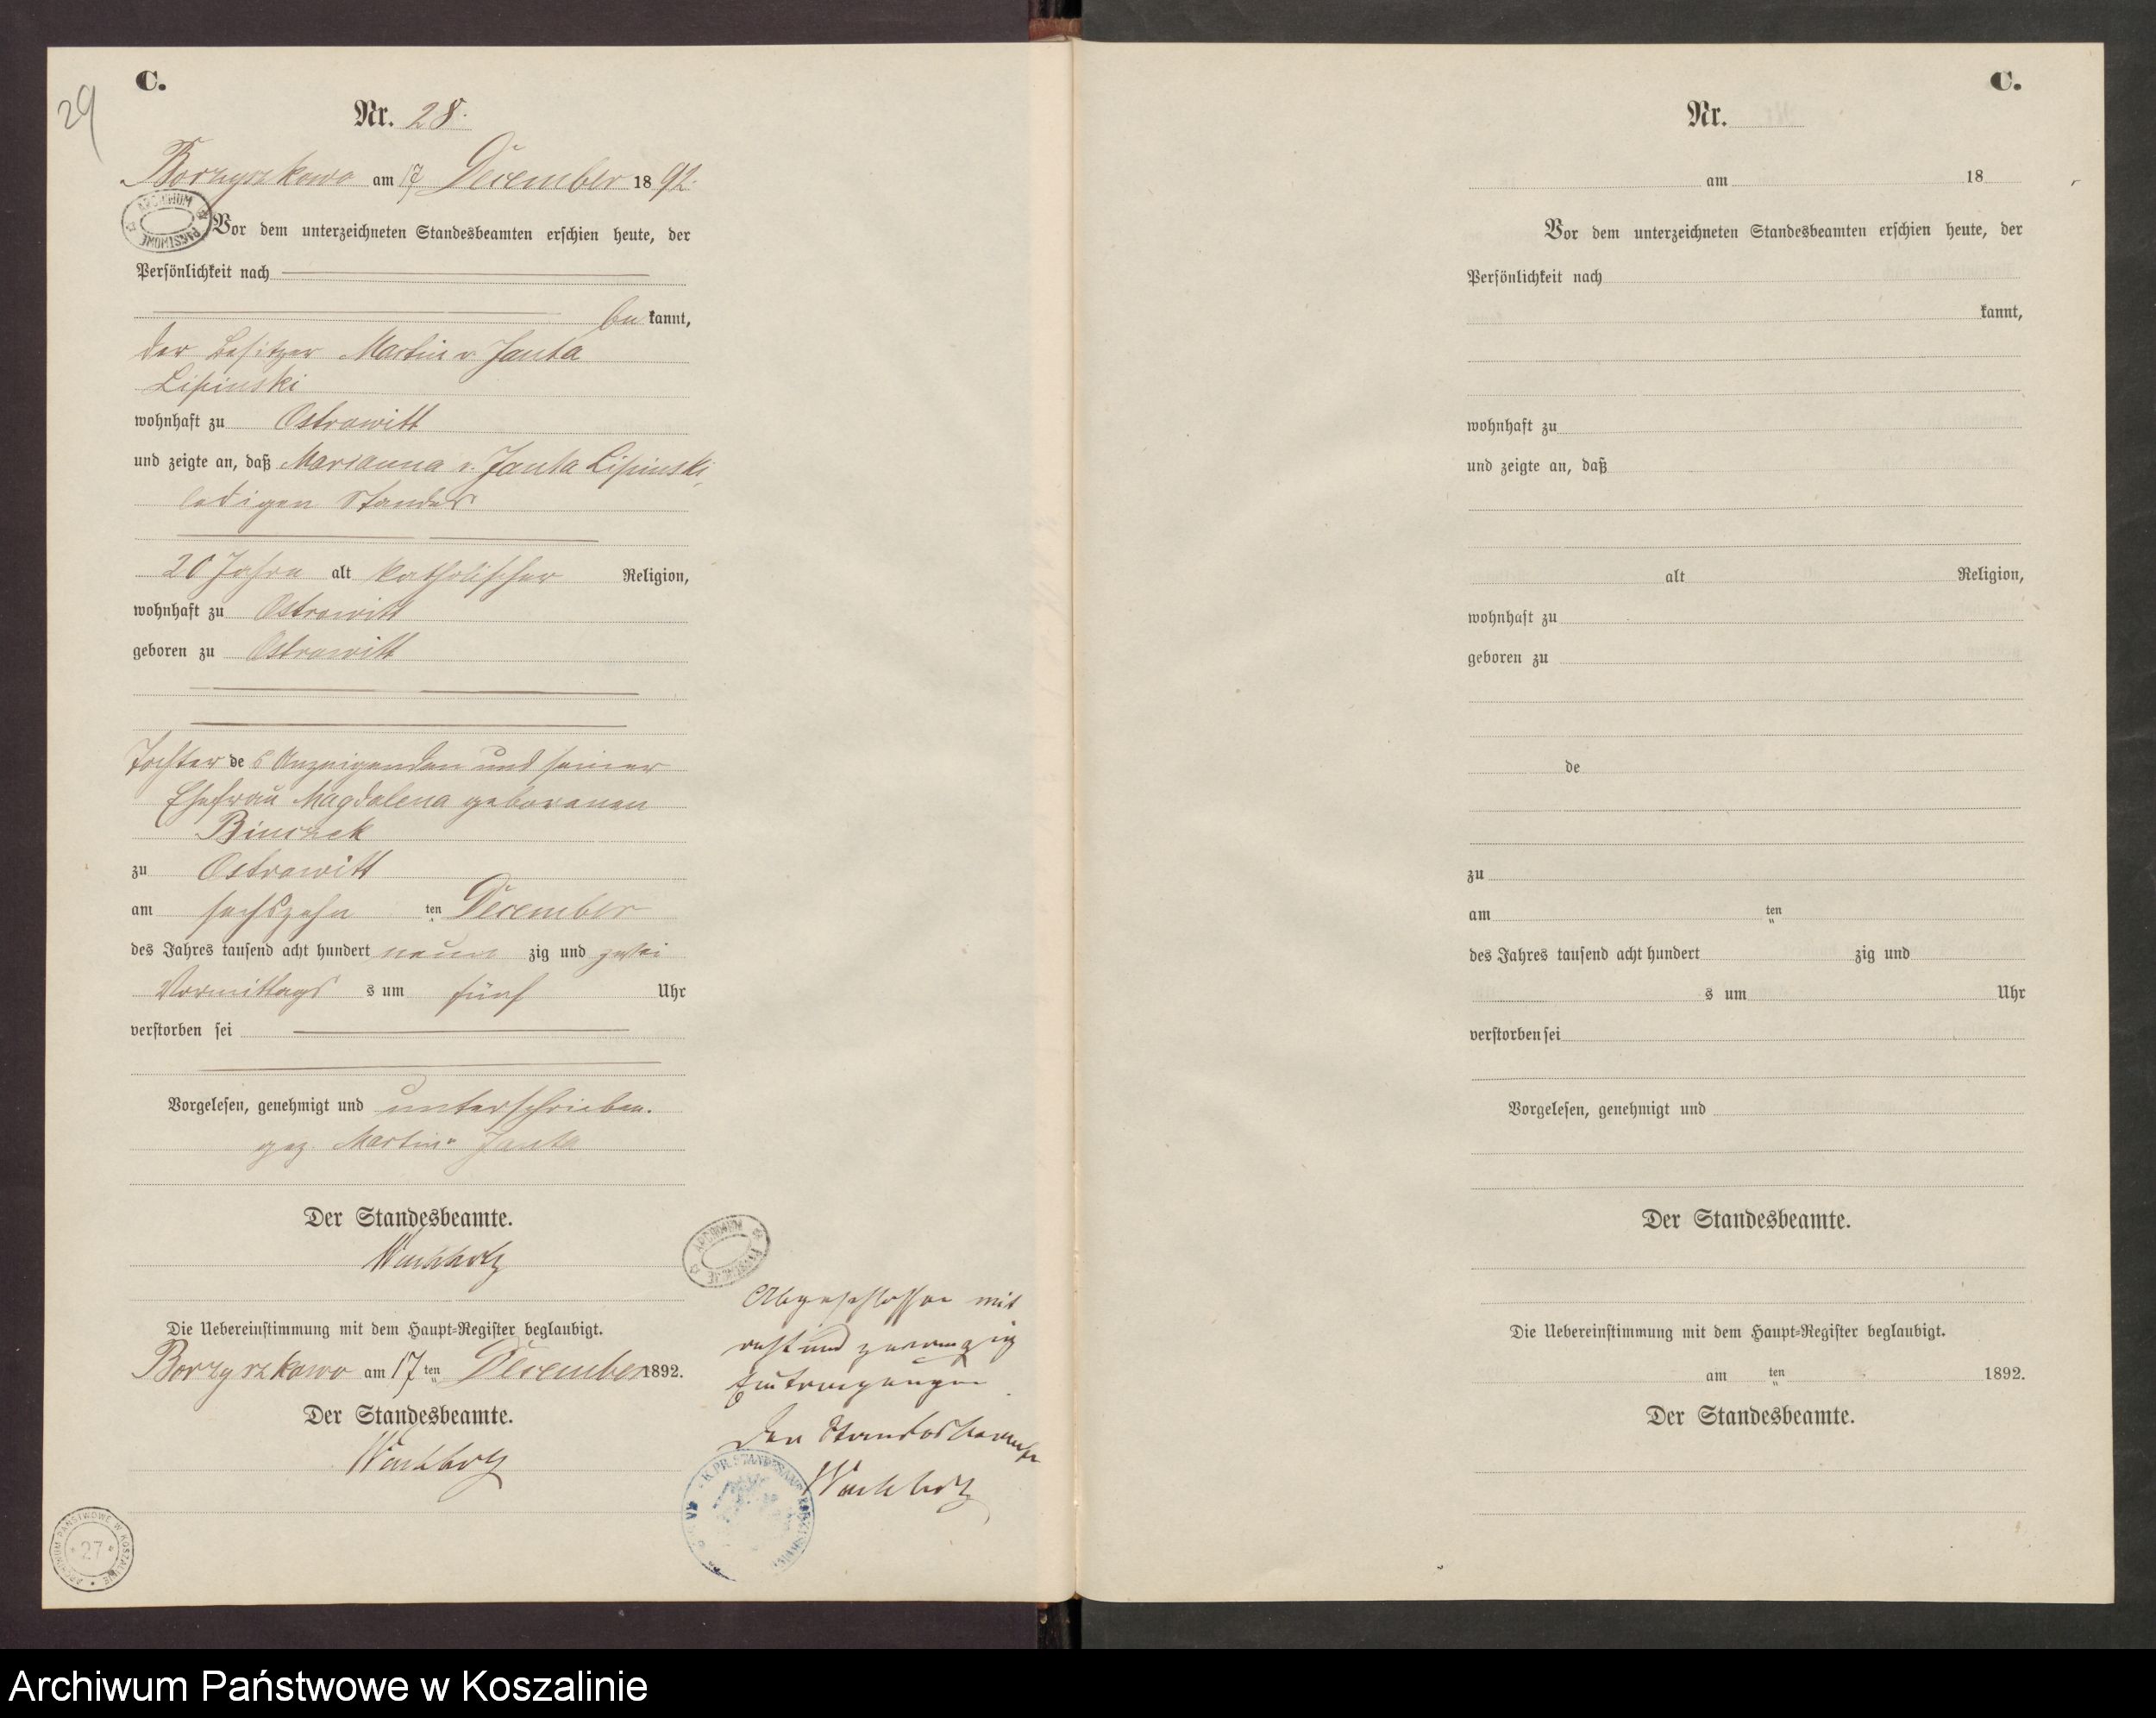 29
C.
Nr. 28.
Borzyszkowo am 17 December 1892.
ARCHIWUM PAŃSTWOWE
Vor dem unterzeichneten Standesbeamten erschien heute, der
Persönlichkeit nach
bekannt,
der Besitzer Martin v. Janta
Lipinski
wohnhaft zu Ostrowitt
und zeigte an, daß Marianna v. Janta Lipinski,
ledigen Standes
20 Jahre alt katholischer Religion,
wohnhaft zu Ostrowitt
geboren zu Ostrowitt
Tochter des Anzeigenden und seiner
Ehefrau Magdalena geborenen
Binczek
zu Ostrowitt
am sechszehn ten December
des Jahres tausend acht hundert neun zig und zwei
Vormittags s um fünf Uhr
verstorben sei
Vorgelesen, genehmigt und unterschrieben.
gez. Martin v Janta
Der Standesbeamte.
Wachholz
Die Uebereinstimmung mit dem Haupt-Register beglaubigt.
Borzyszkowo am 17 ten December 1892.
Der Standesbeamte.
Wachholz
ARCHIWUM PAŃSTWOWE
Abgeschlossen mit
acht und zwanzig
Eintragungen
Der Standesbeamte
Wachholz
K. PR. STANDESAMT
ARCHIWUM PAŃSTWOWE W KOSZALINIE
27
C.
Nr.
am 18
Vor dem unterzeichneten Standesbeamten erschien heute, der
Persönlichkeit nach
kannt,
wohnhaft zu
und zeigte an, daß
alt Religion,
wohnhaft zu
geboren zu
de
zu
am ten
des Jahres tausend acht hundert zig und
s um Uhr
verstorben sei
Vorgelesen, genehmigt und
Der Standesbeamte.
Die Uebereinstimmung mit dem Haupt-Register beglaubigt.
am ten 1892.
Der Standesbeamte.
Archiwum Państwowe w Koszalinie